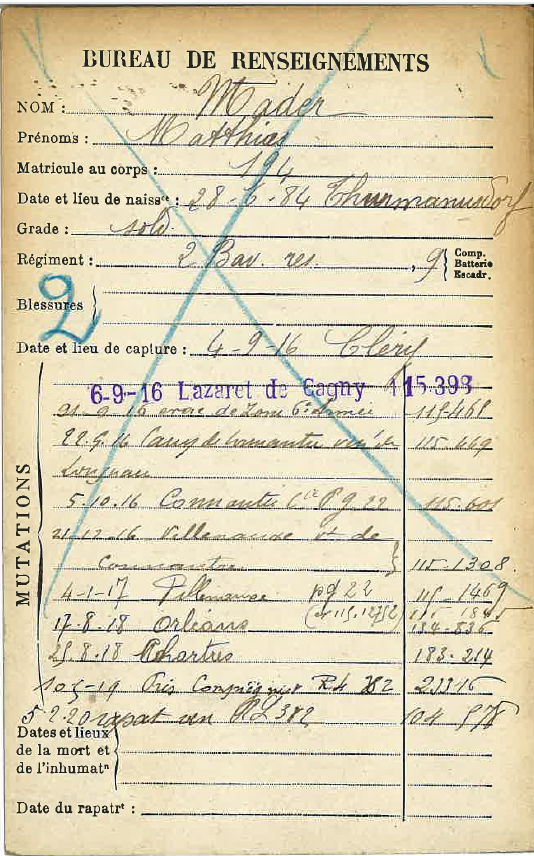 BUREAU DE RENSEIGNEMENTS
NOM : Mader
Prénoms : Matthias
Matricule au corps : 194
Date et lieu de naissce : 28-6-84 Thurmannsdorf
Grade : sold.
Régiment : 2 Bav. res. , 9 { Comp. Batterie Escadr.
2
Blessures
Date et lieu de capture : 4-9-16 Cléry
MUTATIONS
6-9-16 Lazaret de Cagny 115.393
21-9-16 de 6e Armée 115.468
22.9.16 115.469
5.10.16 Connantre Cie Pg 22 115.601
21-12-16 Villenauxe et de
Connantre 115-1308.
4-1-17 Villenauxe pg 22 115-1469
17.8.18 Orléans 134-836
29.8.18 Chartres 183-214
Pris Compiègne 382 23316
5-2-20 rapat en RL 382 104
Dates et lieux
de la mort et
de l'inhumatn
Date du rapatrt :